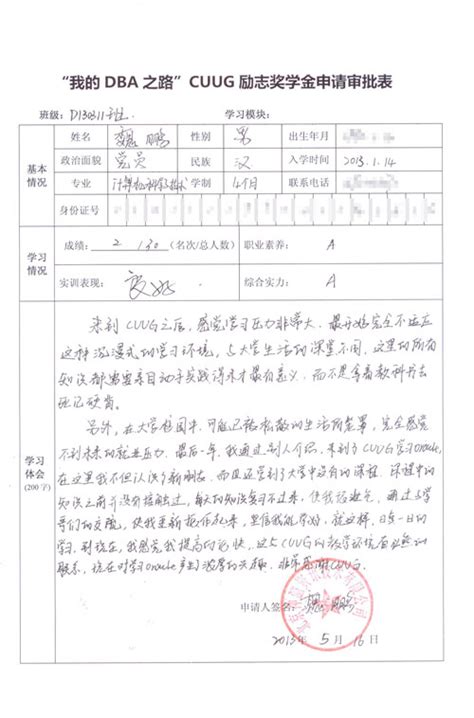 “我的 DBA 之路”CUUG 励志奖学金申请审批表
班级：D130311班 学习模块：
基本情况
姓名 魏鹏 性别 男 出生年月
政治面貌 党员 民族 汉 入学时间 2013.1.14
专业 计算机科学技术 学制 4个月 联系电话
身份证号
学习情况
成绩： 2 130 （名次/总人数） 职业素养： A
实训表现： 较好 综合实力： A
学习体会
(200字)
来到CUUG之后，感觉学习压力非常大，最开始完全不适应
这种沉浸式的学习环境，与大学生活的课堂不同，这里的所有
知识都需要亲自动手实战得来才最有意义，而不是拿着教科书去
死记硬背。
另外，在大学校园中，可能已被松散的生活所笼罩，完全感觉
不到未来的就业压力，最后一年，我通过别人介绍，来到了CUUG学习oracle，
在这里我不但认识了新朋友，而且还学到了大学中没有的课程，课程中的
知识之前并没有接触过，每天的知识复习不过来，使我疲惫，通过与学
哥们的交流，使我重新振作起来，坚信我能学好，就这样，日复一日的
学习，到现在，我感觉我提高的很快，这与CUUG的教学环境有必然的
联系，现在对学习oracle产生了浓厚的兴趣，非常感谢CUUG。
申请人签名： 魏鹏
2013 年 5 月 16 日